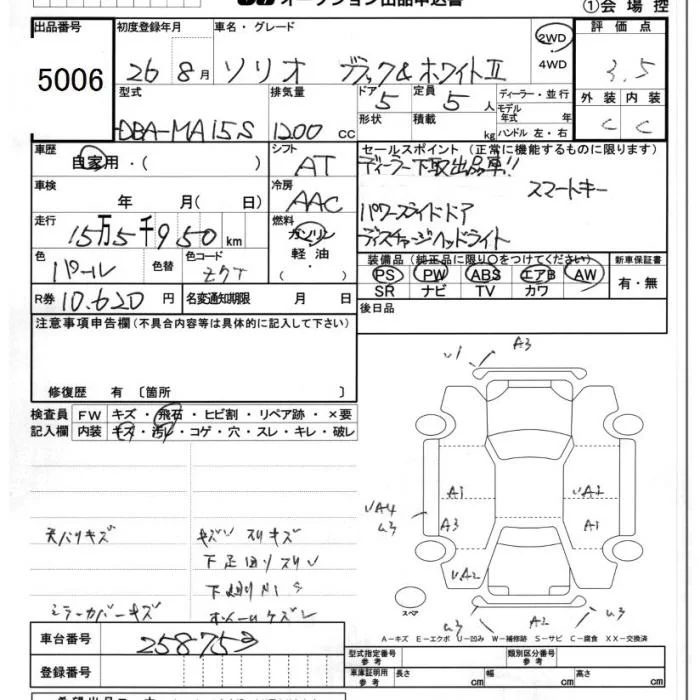 オークション出品申込書 ①会場控
出品番号 初度登録年月 車名・グレード 評価点
5006 26 8月 ソリオ ブラック&ホワイトⅡ 2WD 4WD 3.5
型式 排気量 ドア 5 定員 5人 ディーラー・並行 外装 内装
DBA-MA15S 1200cc 形状 積載 kg モデル年式 年 ハンドル 左・右 C C
車歴 自家用・( ) シフト AT セールスポイント (正常に機能するものに限ります)
ディーラー下取出品車!!
車検 年 月( 日) 冷房 AAC スマートキー
パワースライドドア
走行 15万5千950km 燃料 ガソリン 軽油・ ディスチャージヘッドライト
色 パール 色替 色コード ZQT 装備品(純正品に限り○をつけてください) 新車保証書
PS PW ABS エアB AW 有・無
SR ナビ TV カワ
R券 10,620円 名変通知期限 月 日 後日品
注意事項申告欄(不具合内容等は具体的に記入して下さい)
修復歴 有〔箇所 〕
検査員 FW キズ・飛石・ヒビ割・リペア跡・×要
記入欄 内装 キズ・汚れ・コゲ・穴・スレ・キレ・破レ
U1 A3
A1 UA2
UA4 U3 A3 A1
天バリキズ キズU スリキズ
下廻りスリU
UA2
下廻りサビ
ミラーカバーキズ ホイールケズレ
スペア
U3 A2 U3
A-キズ E-エクボ U-凹み W-補修跡 S-サビ C-腐食 XX-交換済
車台番号 258753
型式指定番号 参考 類別区分番号 参考
登録番号 車庫証明用 参考 長さ cm 幅 cm 高さ cm